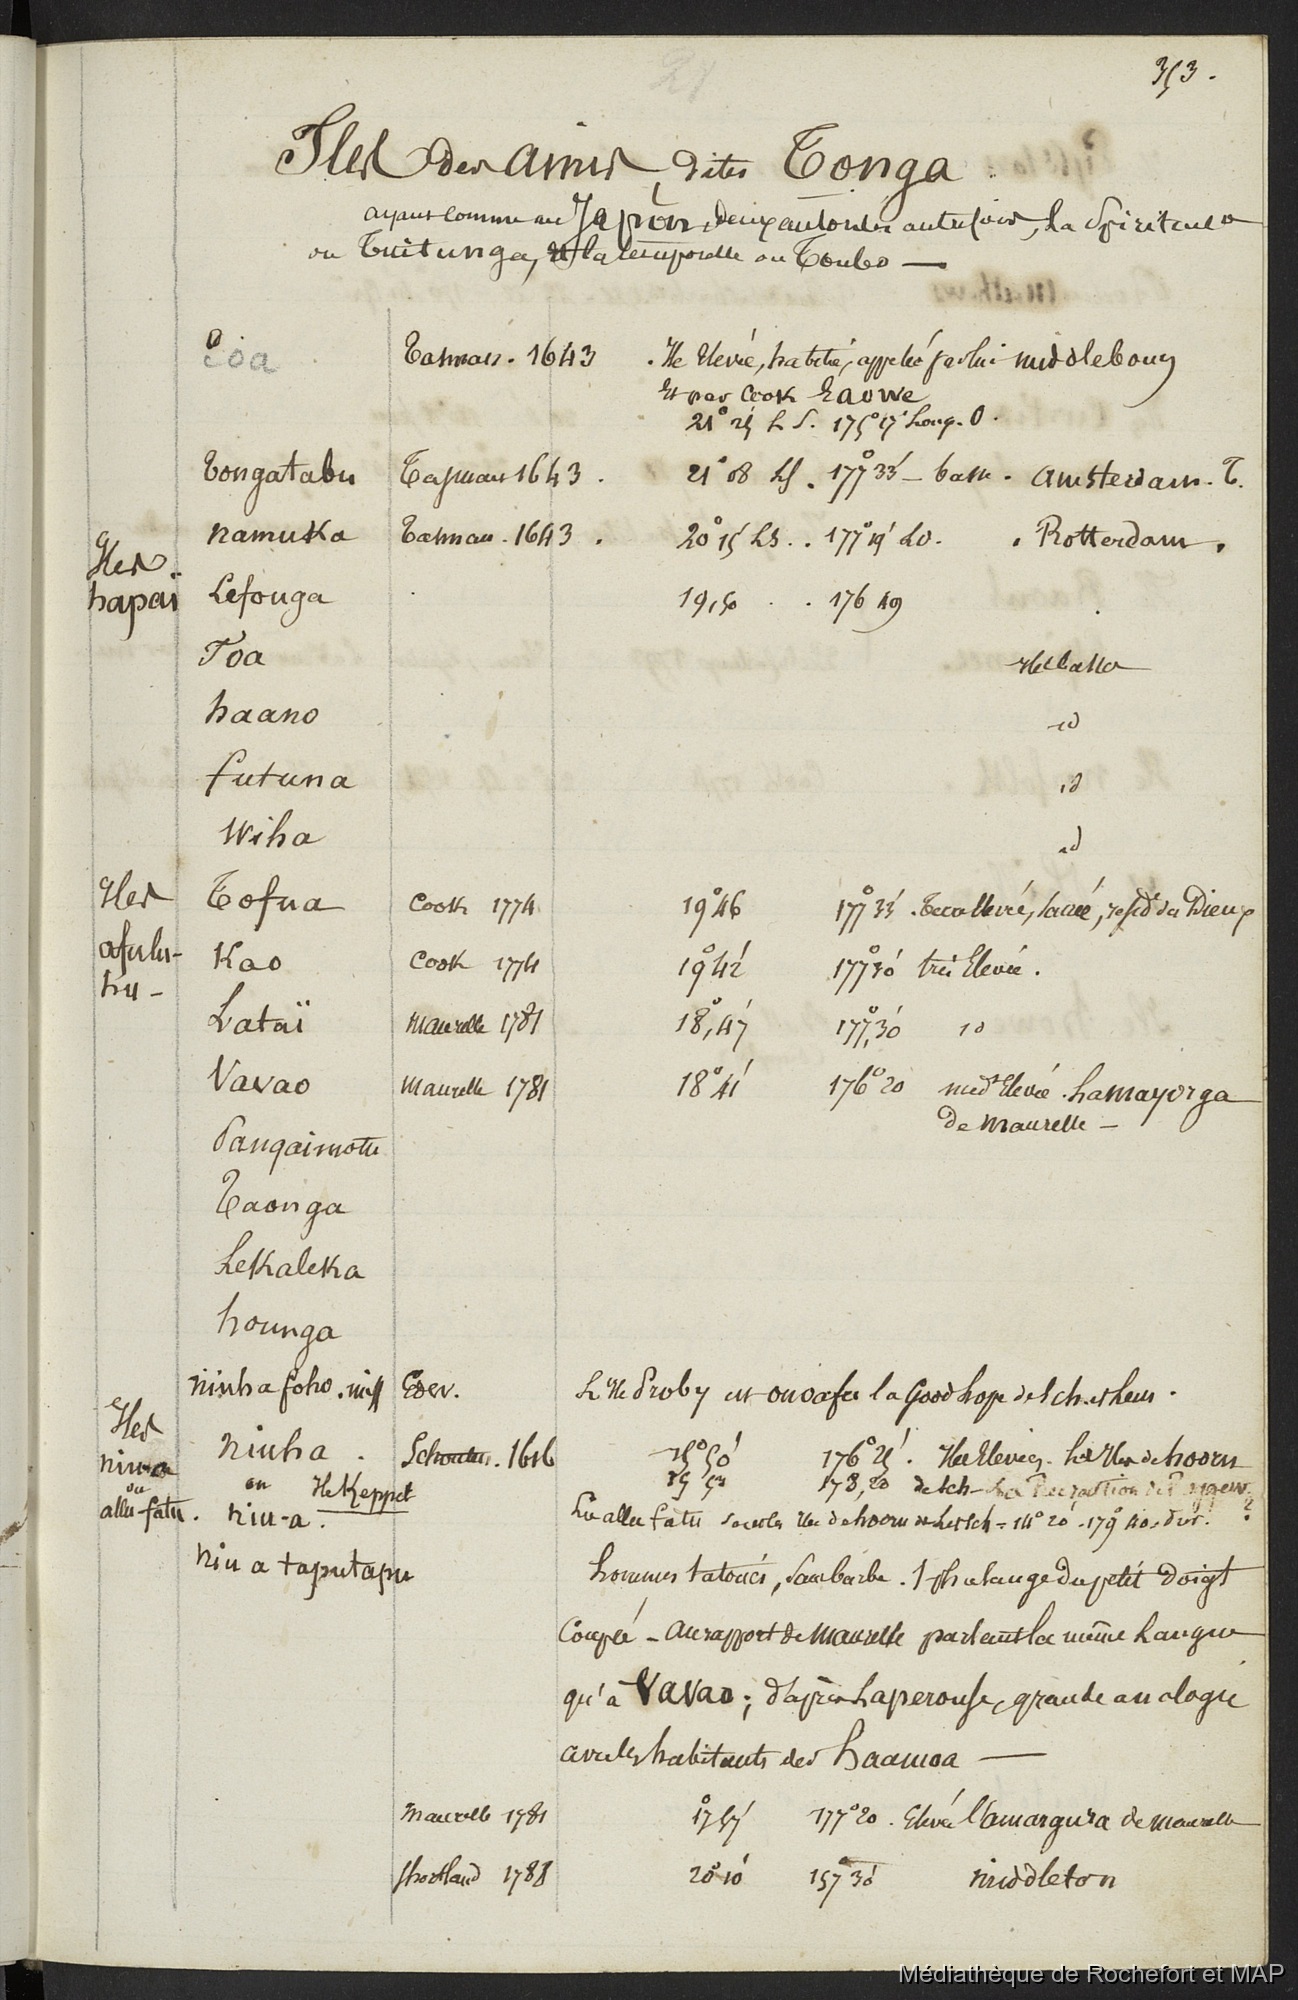 353.
Iles des amis, dites Tonga
ayant comme au Japon deux autorités autrefois, la Spirituelle
ou Tuitunga, et la temporelle ou Toubo —
Eoa Tasman. 1643 . Ile Elevée, habitée, appelée par lui middlebourg
Et par Cook Eaowe
21° 25 L S. 175° 17' Long. O.
Tongatabu Tasman 1643. 21° 08 LS. 177° 33' — basse. amsterdam. T.
namuka Tasman. 1643. 20° 15' LS. . 177° 19' LO. . Rotterdam.
Iles hapaï
Lefouga 19,50 . . 176 49
Foa Iles basses
haano id
futuna id
Wiha id
Iles afulu-hu-
Tofua Cook 1774 19° 46 177° 33' . Sacrée, des Dieux
Kao Cook 1774 19° 42' 177° 30' très Elevée.
Lataï maurelle 1781 18°,47' 177°,30' id
Vavao maurelle 1781 18° 41' 176° 20 medt Elevée. La mayorga
de maurelle —
Pangaimotu
Taonga
Lekaleka
hounga
ninha foho. miss Edw. L'Ile Proby est onoafu la Good hope de Sch.
Iles niu-a ou allu-fatu.
ninha. Schouten. 1616 15° 50' 176° 25'. Iles Elevées. Les Iles de hoorn
ou Ile Keppel 178,20 de Sch -
niu-a. allu fatu Iles de hoorn 14° 20' . 179° 40
niu a taputapu hommes tatoués, sans barbe. 1 phalange du petit Doigt
Coupée — au rapport de Maurelle parlant la même Langue
qu'à Vavao; d'après Laperouse, grande analogie
avec les habitants des haamoa —
maurelle 1781 17° 57' 177° 20 . Elevée l'amargura de maurelle
Shortland 1788 20° 10' 157° 30' middleton
Médiathèque de Rochefort et MAP